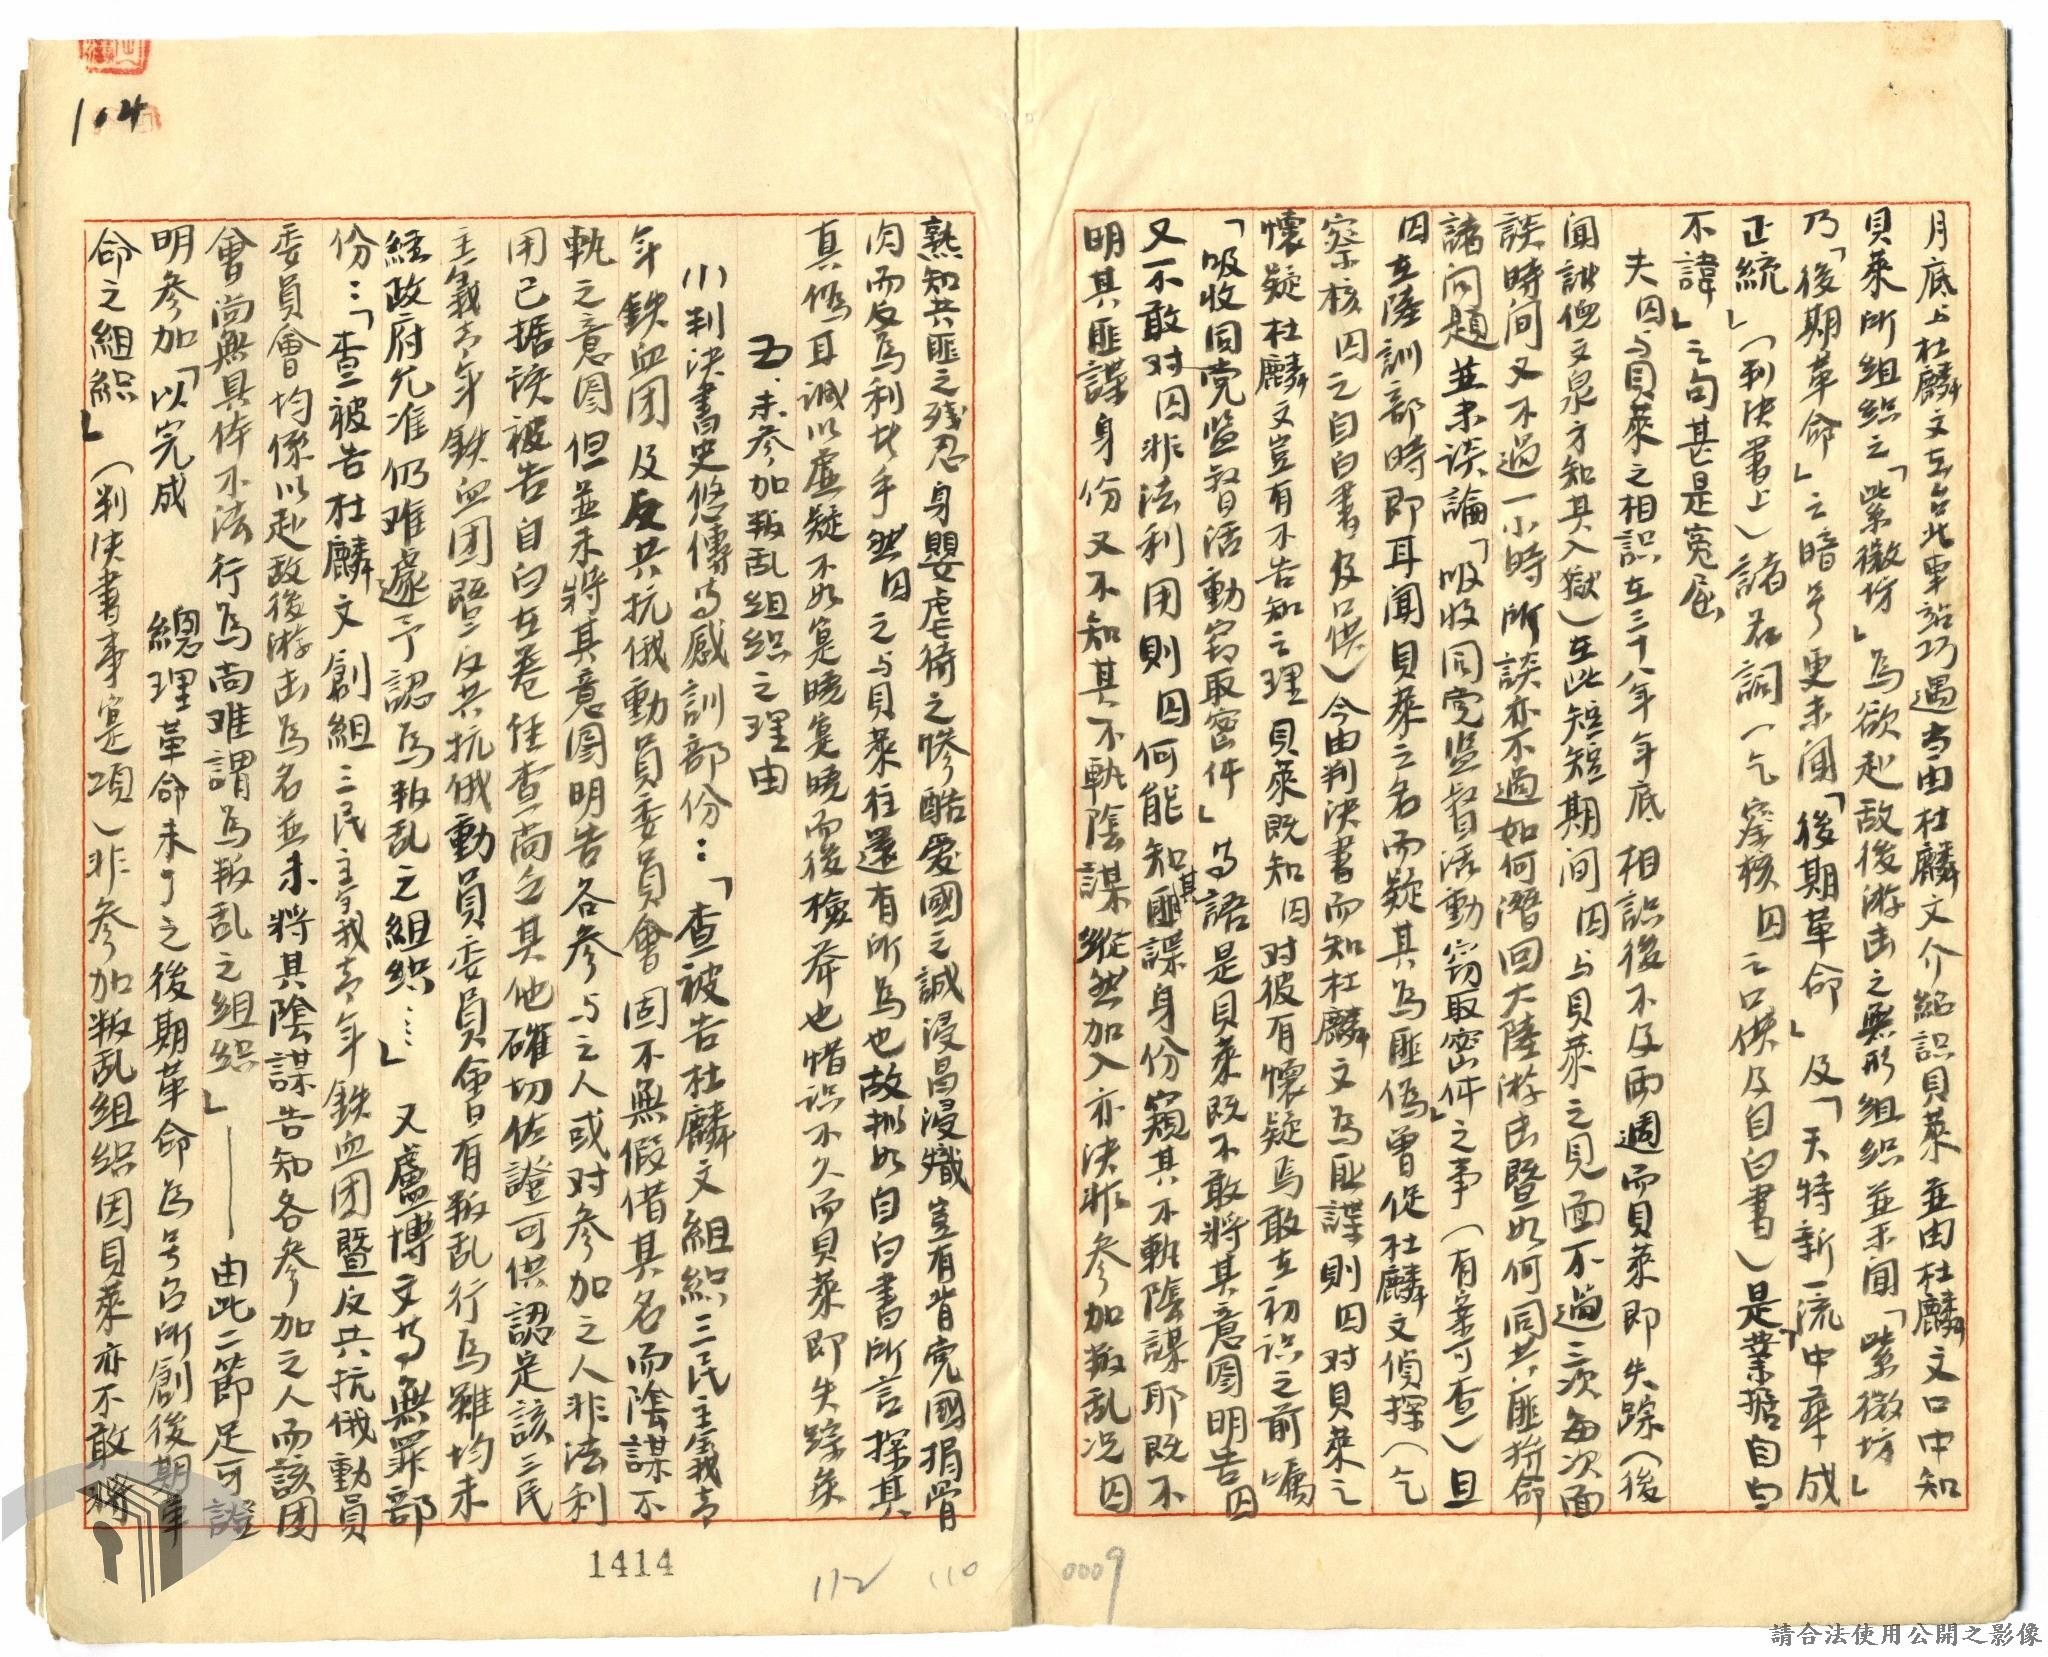 月底上杜麟文在台北車站巧遇當由杜麟文介紹識貝萊並由杜麟文口中知
貝萊所組織之「紫微坊」為欲赴敵後游击之無形組织並未聞「紫微坊」
乃「後期革命」之暗号更未闻「後期革命」及「天特新一流中華成
正統」（判决書上）諸名詞（乞察核囚之口供及自白書）是「業據自白
不諱」之句甚是冤屈
夫囚与貝萊之相識在三十八年年底相識後不及兩週而貝萊即失踪（後
闻訛倪文泉方知其入獄）在此短短期间囚与貝萊之見面不過三次每次面
談時间又不過一小時所談亦不過如何潛回大陸游击暨如何同共匪拚命
諸问題並未談論「吸收同党监督活動窃取密件」之事（有案可查）且
囚在陸訓部時即耳闻貝萊之名而疑其為匪偽曾促杜麟文偵探（乞
察核囚之自白書及口供）今由判決書而知杜麟文為匪諜則囚对貝萊之
懷疑杜麟文豈有不告知之理貝萊既知囚对彼有懷疑焉敢在初识之前嘱
「吸收同党监督活動窃取密件」等語是貝萊既不敢將其意圖明告囚
又不敢对囚非法利用則囚何能知其匪諜身份窺其不軌陰謀耶既不
明其匪諜身份又不知其不軌陰謀縱然加入亦決非參加叛乱况囚
熟知共匪之残忍身嬰虐待之慘酷愛國之誠浸昌浸熾豈有背党國捐骨
肉而反為利其手然囚之与貝萊往還有所為也故拟如自白書所言探其
真偽耳誠以虛疑不如寔曉寔曉而後檢举也惜识不久而貝萊即失踪矣
五.未參加叛乱組织之理由
(1)判決書史悠傳等感訓部份：「查被告杜麟文組織三民主義青
年鉄血团及反共抗俄動員委員會固不無假借其名而陰謀不
軌之意图但並未將其意圖明告各參与之人或对參加之人非法利
用已据该被告自白在卷任查尚乏其他確切佐證可供認定該三民
主義青年鉄血团暨反共抗俄動員委員會有叛乱行為雖均未
經政府允准仍难遽予認為叛乱之組織……」又盧博文等無罪部
份：「查被告杜麟文創組三民主義青年鉄血团暨反共抗俄動員
委員會均係以赴敌後游击為名並未將其陰謀告知各參加之人而該团
會尚無具体不法行為尚难謂為叛乱之組织」——由此二節足可證
明參加「以完成　總理革命未了之後期革命為号召所創後期革
命之組織」（判決書事寔項）非參加叛乱組织因貝萊亦不敢將
104
1414
112
110
0009
請合法使用公開之影像